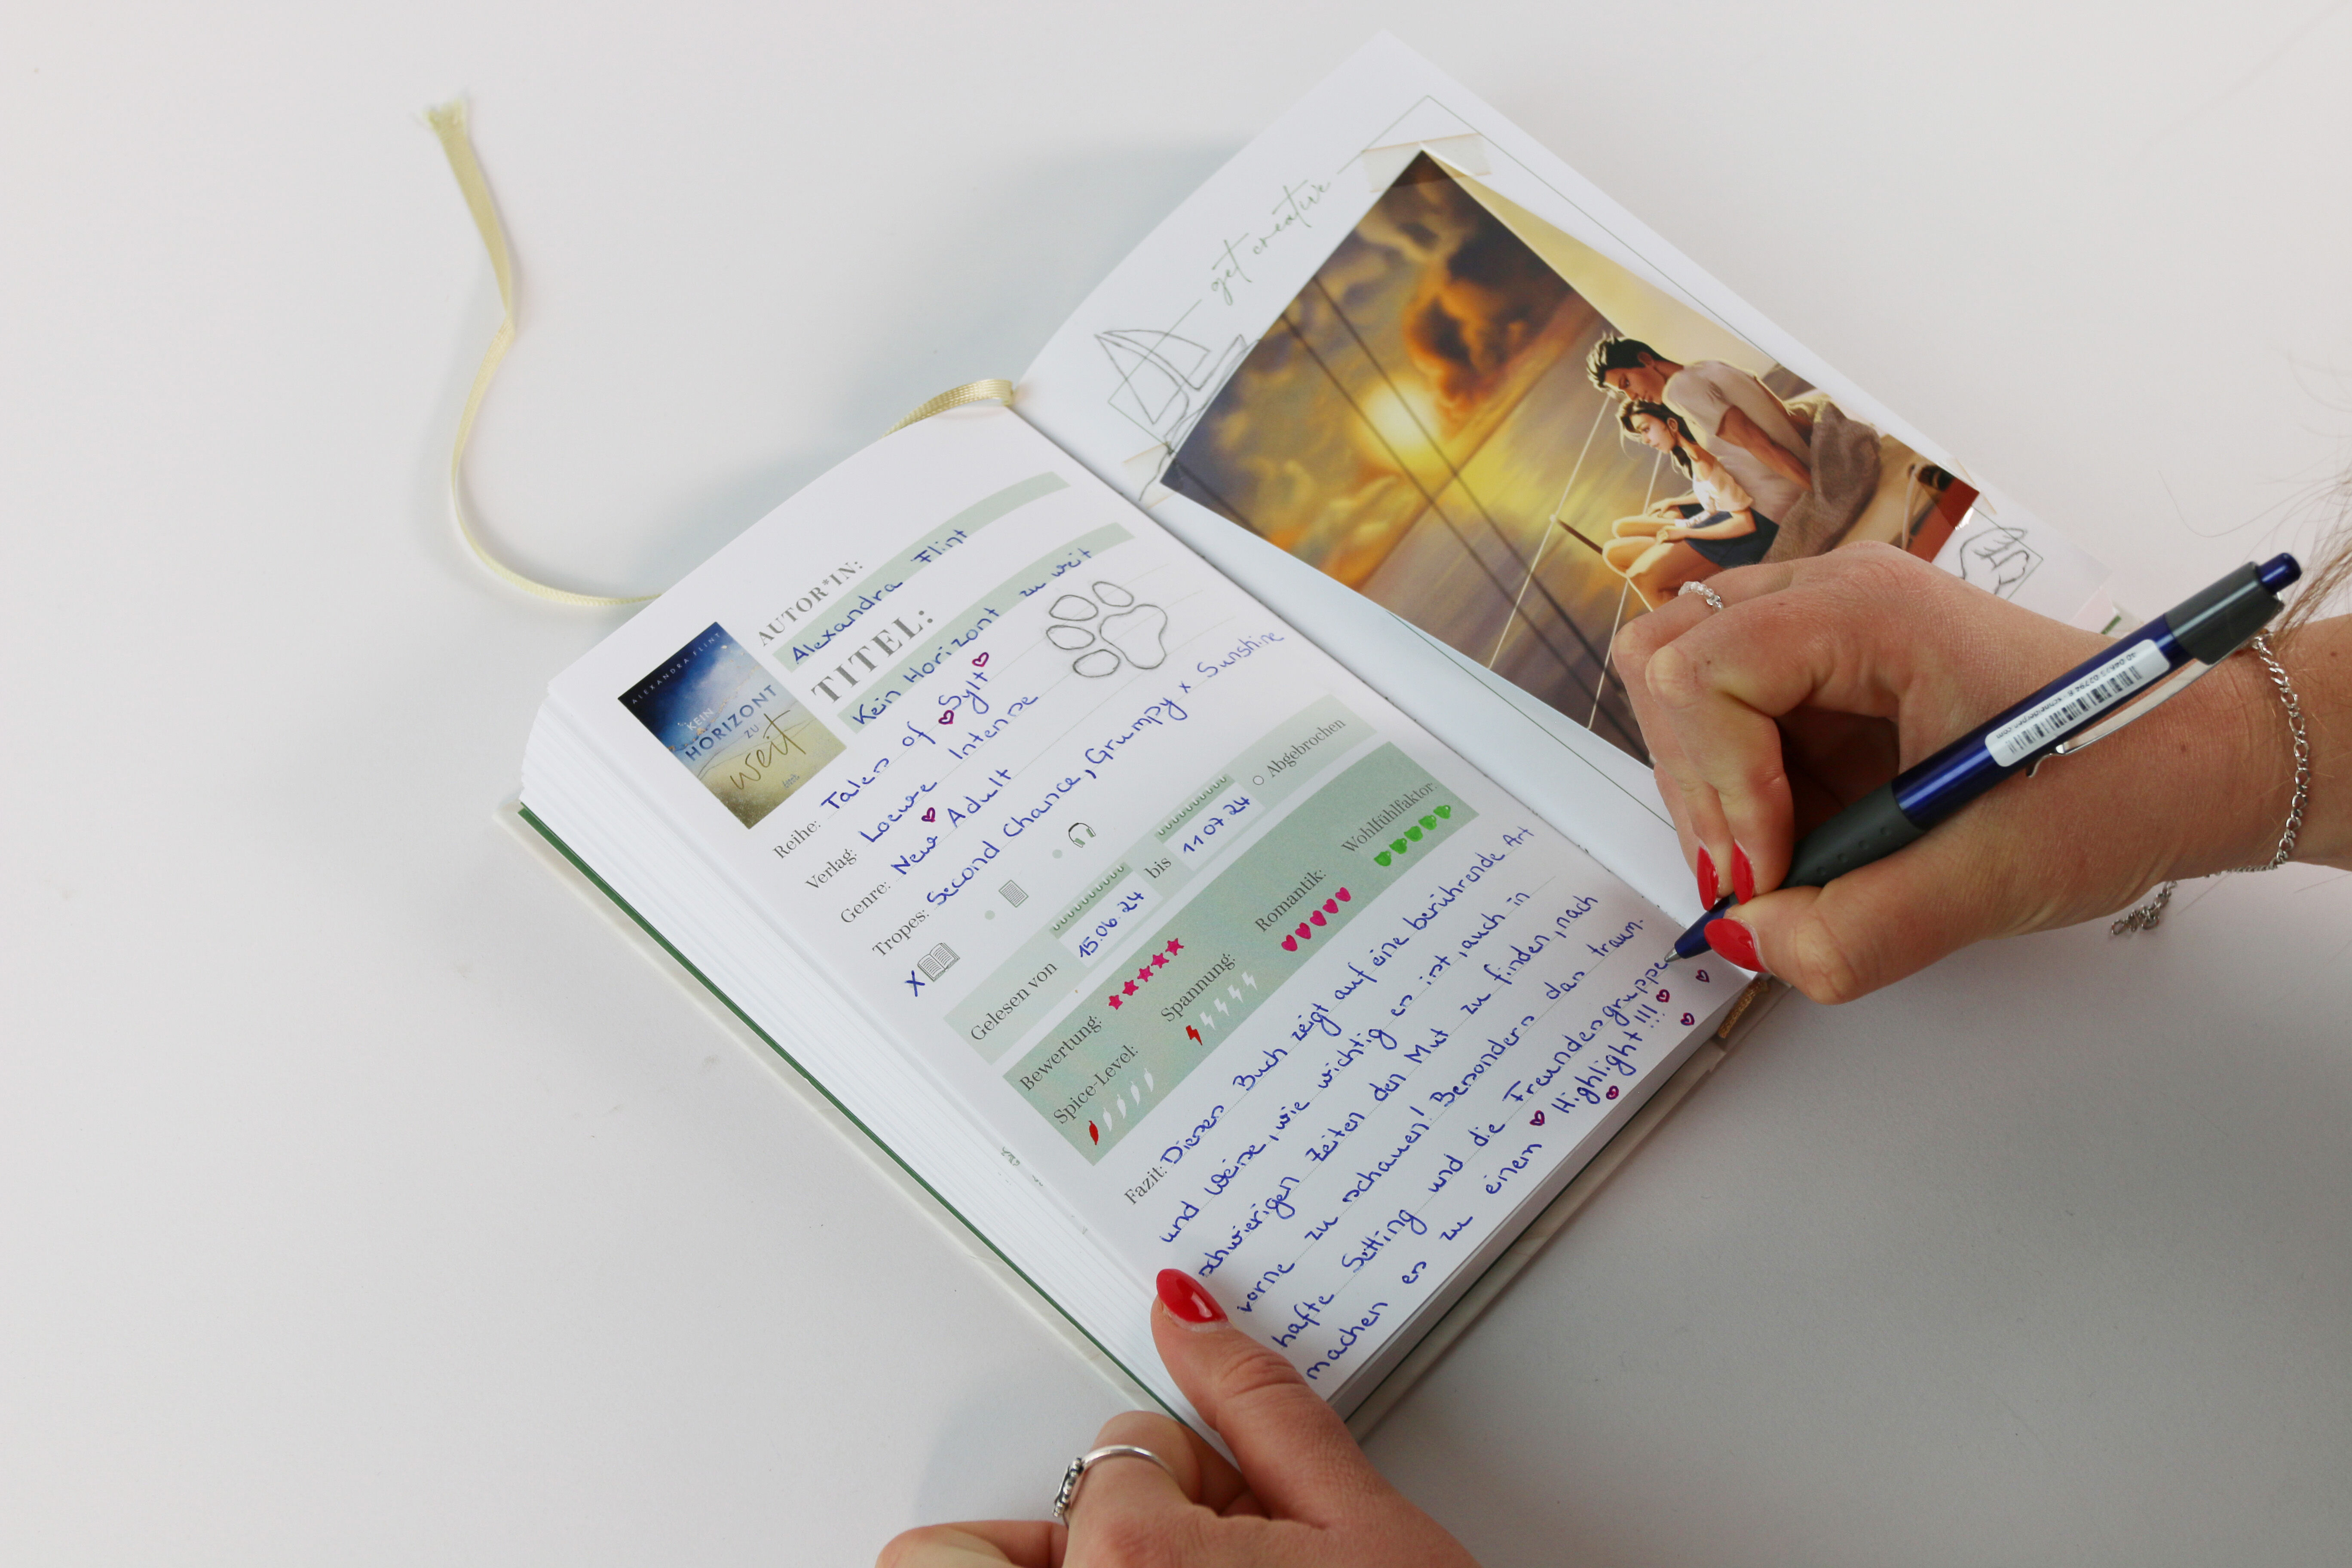 get creative
ALEXANDRA FLINT
KEIN
HORIZONT
ZU
weit
AUTOR*IN:
Alexandra Flint
TITEL:
Kein Horizont zu weit
Reihe: Tales of Sylt
Verlag: Loewe Intense
Genre: New Adult
Tropes: Second Chance, Grumpy x Sunshine
x
Gelesen von 15.06.24 bis 11.07.24 Abgebrochen
Bewertung:
Spice-Level:
Spannung:
Romantik:
Wohlfühlfaktor
Fazit: Dieses Buch zeigt auf eine berührende Art
und Weise, wie wichtig es ist, auch in
schwierigen Zeiten den Mut zu finden, nach
vorne zu schauen! Besonders das traum-
hafte Setting und die Freundesgruppe
machen es zu einem Highlight!!!